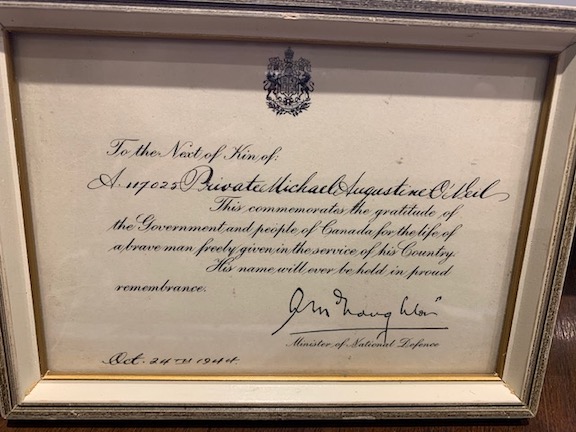 To the Next of Kin of:
A. 117025 Private Michael Augustine O'Neil
This commemorates the gratitude of
the Government and people of Canada for the life of
a brave man freely given in the service of his Country.
His name will ever be held in proud
remembrance.
Minister of National Defence
Oct. 24TH 1944